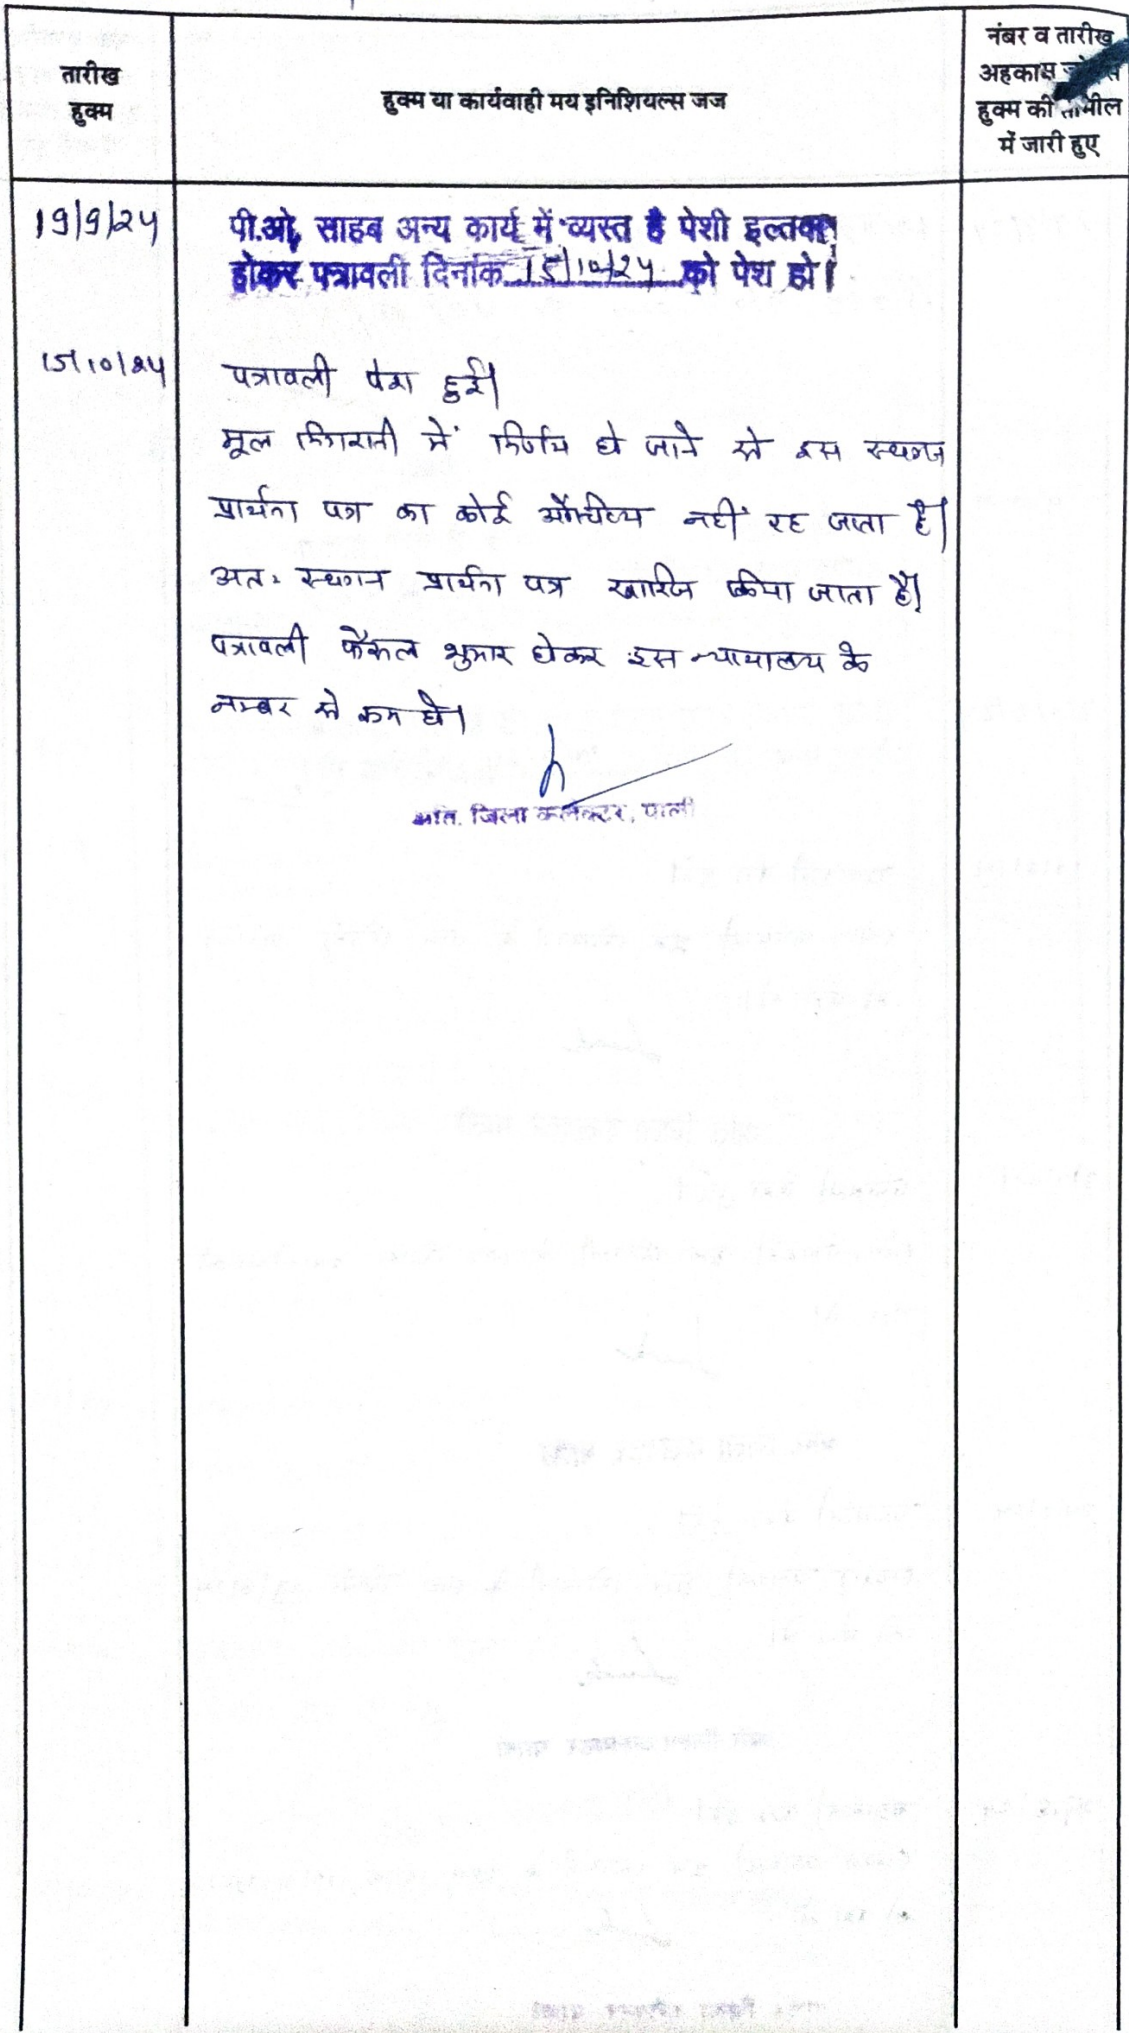 तारीख
हुक्म
हुक्म या कार्यवाही मय इनिशियल्स जज
नंबर व तारीख
अहकाम
हुक्म की तामील
में जारी हुए
19/9/24
पी.ओ. साहब अन्य कार्य में व्यस्त है पेशी इल्तवा
होकर पत्रावली दिनांक 15/10/24 को पेश हो।
15/10/24
पत्रावली पेश हुई।
मूल निगरानी में निर्णय हो जाने से इस स्थगन
प्रार्थना पत्र का कोई औचित्य नहीं रह जाता है।
अतः स्थगन प्रार्थना पत्र खारिज किया जाता है।
पत्रावली फैसल शुमार होकर इस न्यायालय के
नम्बर से कम हो।
अति. जिला कलेक्टर, पाली